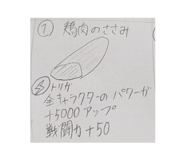 ① 鶏肉のささみ
トリガ
全キャラクターのパワーが
+5000アップ
戦闘力+50